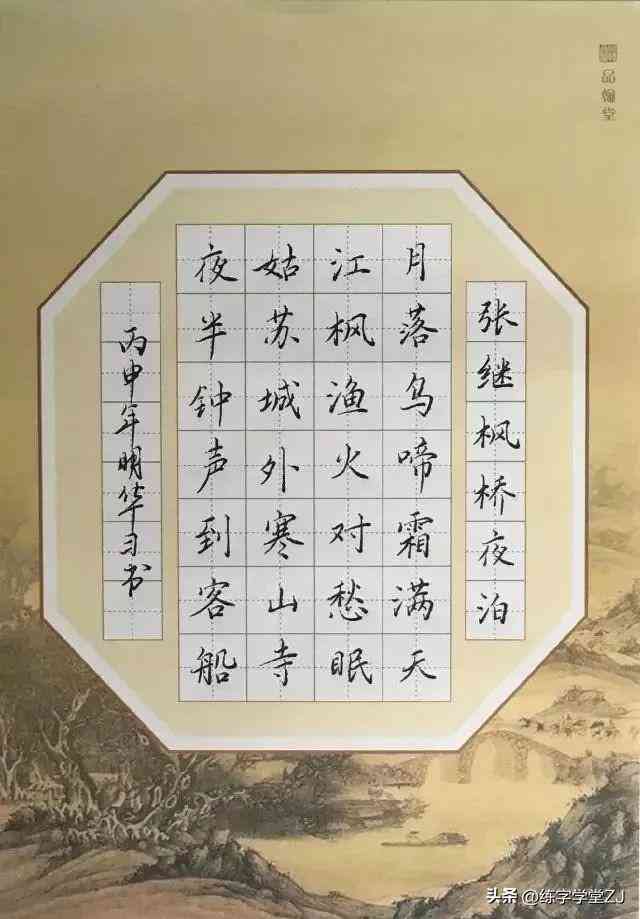 张继枫桥夜泊
月落乌啼霜满天
江枫渔火对愁眠
姑苏城外寒山寺
夜半钟声到客船
丙申年明华习书
品翰堂
头条 @练字学堂ZJ